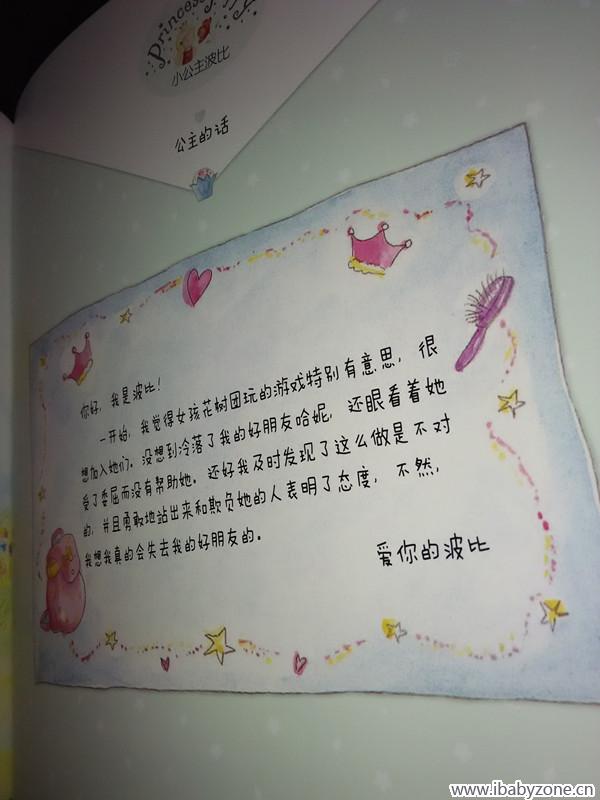 Princess
小公主波比
公主的话
你好，我是波比！
一开始，我觉得女孩花树团玩的游戏特别有意思，很
想加入她们。没想到冷落了我的好朋友哈妮，还眼看着她
受了委屈而没有帮助她。还好我及时发现了这么做是不对
的，并且勇敢地站出来和欺负她的人表明了态度，不然，
我想我真的会失去我的好朋友的。
爱你的波比
www.ibabyzone.cn